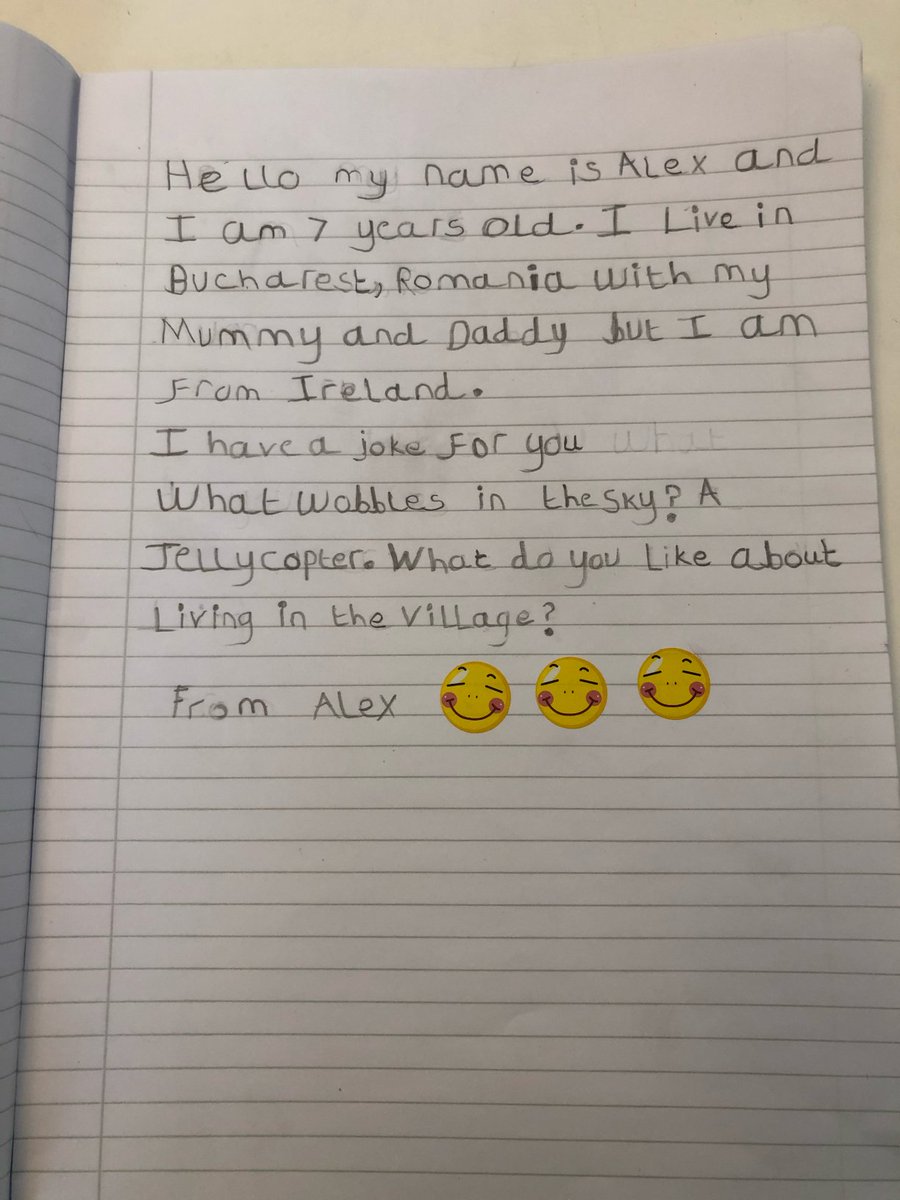 Hello my name is Alex and
I am 7 years old. I Live in
Bucharest, Romania with my
Mummy and Daddy but I am
From Ireland.
I have a joke For you what
What wobbles in the sky? A
Jellycopter. What do you Like about
Living in the village?
From Alex